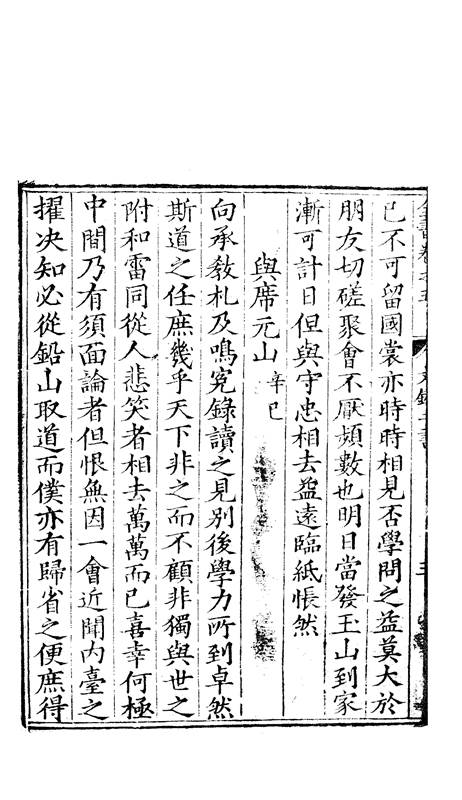 已不可留國裳亦時時相見否學問之益莫大於
朋友切磋聚會不厭頻數也明日當發玉山到家
漸可計日但與守忠相去益遠臨紙悵然
與席元山 辛巳
向承教札及鳴冤錄讀之見別後學力所到卓然
斯道之任庶幾乎天下非之而不顧非獨與世之
附和雷同從人悲笑者相去萬萬而已喜幸何極
中間乃有須面論者但恨無因一會近聞內臺之
擢决知必從鉛山取道而僕亦有歸省之便庶得